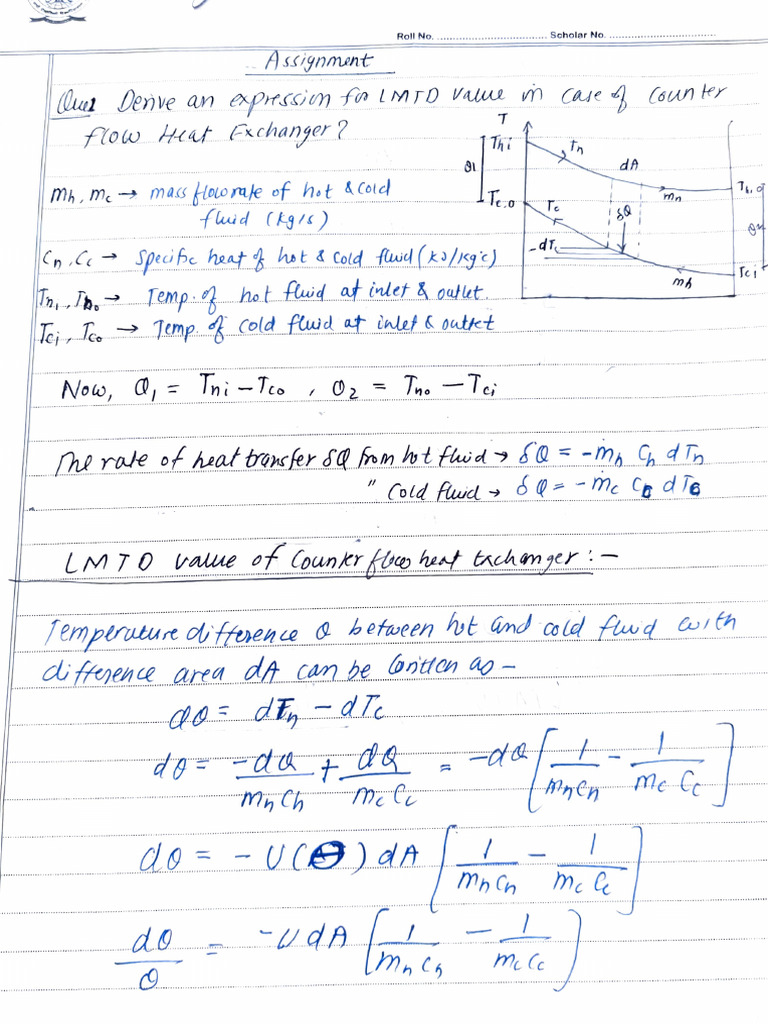 Roll No. .................... Scholar No. ....................
Assignment
Que1 Derive an expression for LMTD value in case of Counter
flow Heat Exchanger?
T
Thi
Th
dA
θ1
mh
Th,o
Tc,o
Tc
δQ
θ2
-dTc
Tci
mh
mh, mc → mass flow rate of hot & cold
fluid (kg/s)
Ch, Cc → Specific heat of hot & cold fluid (kJ/kg°c)
Thi, Tho → Temp. of hot fluid at inlet & outlet.
Tci, Tco → Temp. of cold fluid at inlet & outlet
Now, θ1 = Thi - Tco , θ2 = Tho - Tci
The rate of heat transfer δQ from hot fluid → δQ = -ṁh Ch dTh
" Cold fluid → δQ = -ṁc Cc dTc
LMTD value of Counter flow heat Exchanger :-
Temperature difference θ between hot and cold fluid with
difference area dA can be written as -
dθ = dTh - dTc
dθ = -dQ/mhCh + dQ/mcCc = -dQ [1/mhCh - 1/mcCc]
dθ = -U(θ) dA [1/mhCh - 1/mcCc]
dθ/θ = -UdA [1/mhCh - 1/mcCc]